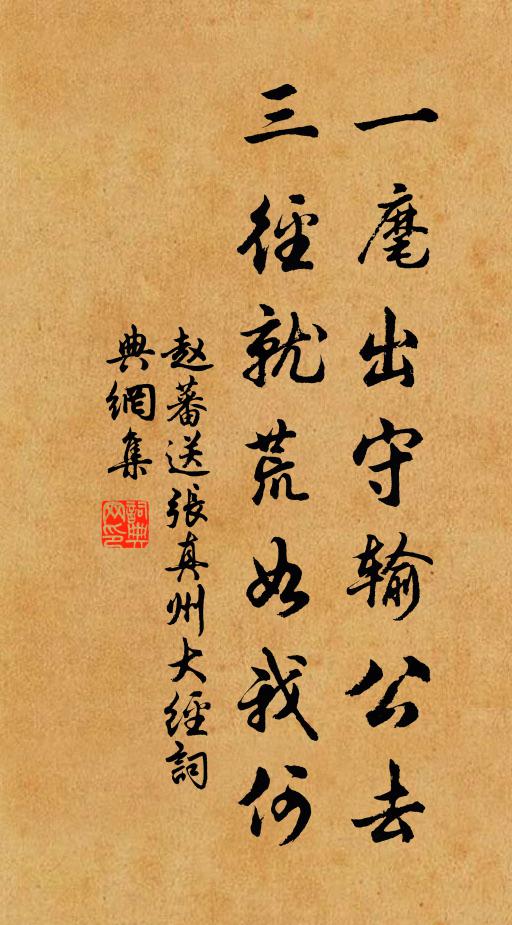 一麾出守输公去
三徑就荒如我何
赵蕃送張真州大經詞
典網集
詞典网印